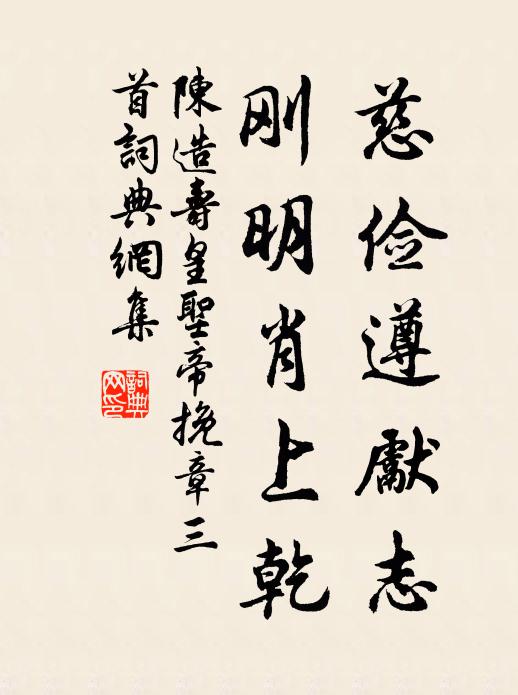 慈儉遵獻志
剛明肖上乾
陳造壽皇聖帝挽章三
首詞典網集
詞典網印